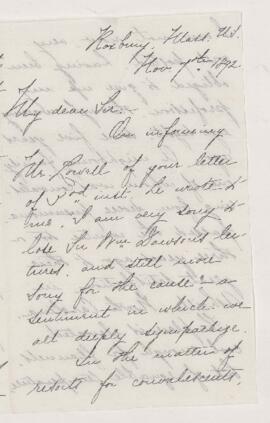 Roxbury, Mass. U.S.
Nov 7th 1892.
My dear Sir.-
On informing
Mr. Lowell of your letter
of 3rd inst. he wrote to
me. "I am very sorry to
lose Sir Wm Dawson's lec-
tures, and still more
sorry for the cause" - a
sentiment in which we
all deeply sympathise.
In the matter of
resorts for convalescents,